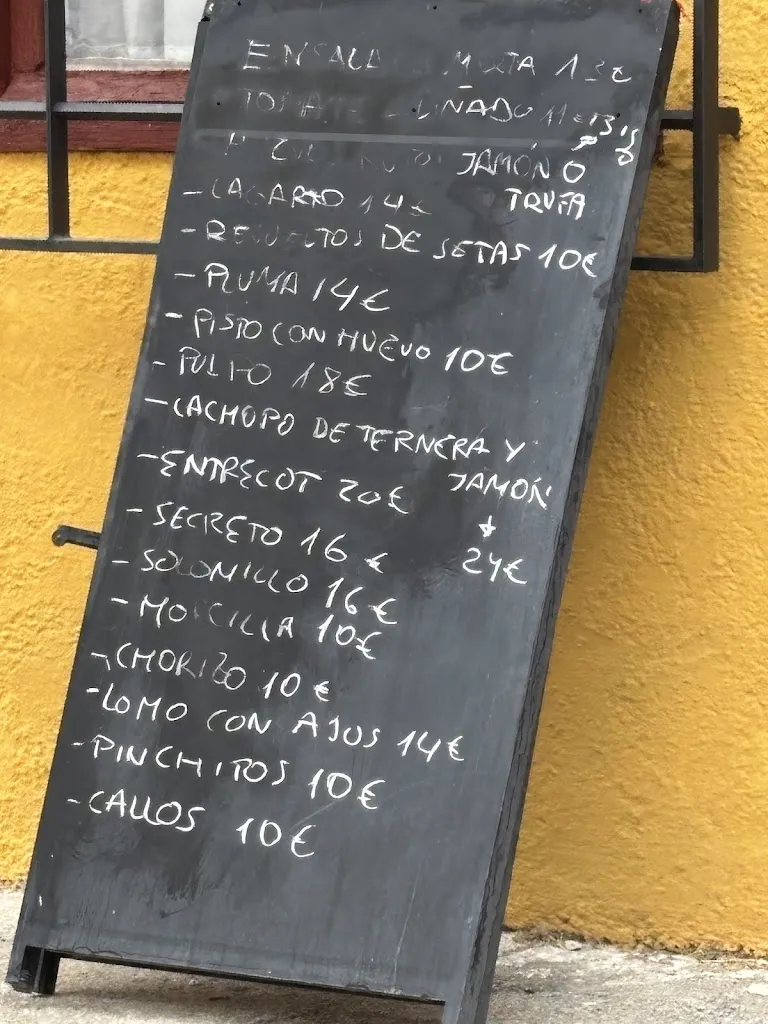 ENSALADA MIXTA 13€
TOMATE ALIÑADO 11€
JAMÓN O
TRUFA
- LAGARTO 14€
- REVUELTOS DE SETAS 10€
- PLUMA 14€
- PISTO CON HUEVO 10€
- PULPO 18€
- CACHOPO DE TERNERA Y
JAMÓN
24€
- ENTRECOT 20€
- SECRETO 16€
- SOLOMILLO 16€
- MORCILLA 10€
- CHORIZO 10€
- LOMO CON AJOS 14€
- PINCHITOS 10€
- CALLOS 10€